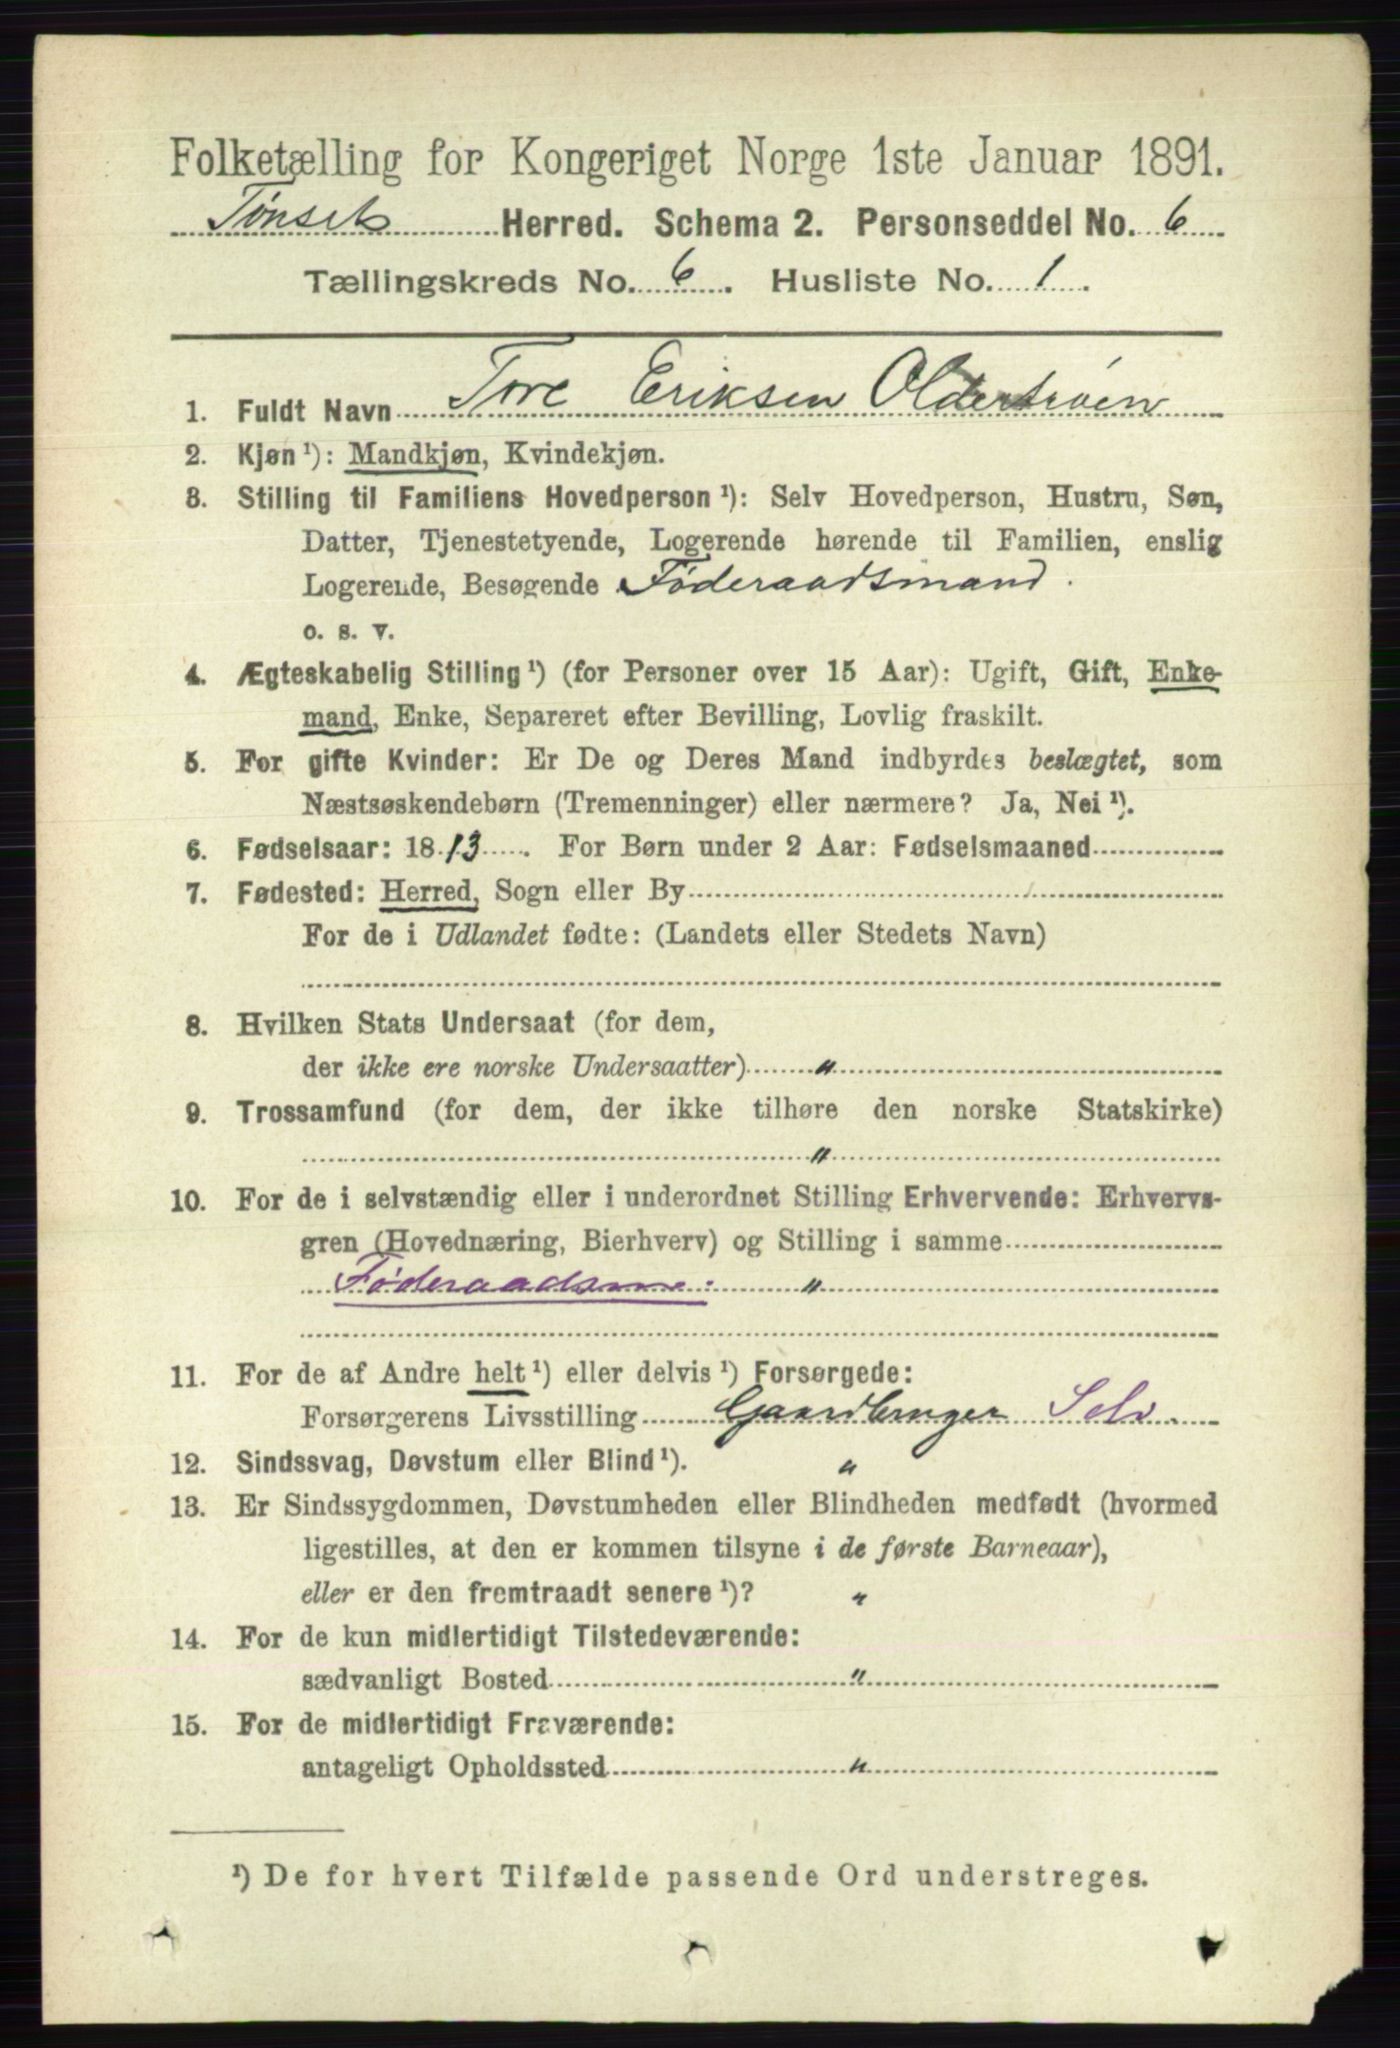 Folketælling for Kongeriget Norge 1ste Januar 1891.
Tønset Herred. Schema 2. Personseddel No. 6
Tællingskreds No. 6. Husliste No. 1.
1. Fuldt Navn Tore Eriksen Oldertrøen
2. Kjøn ¹): Mandkjøn, Kvindekjøn.
3. Stilling til Familiens Hovedperson ¹): Selv Hovedperson, Hustru, Søn,
Datter, Tjenestetyende, Logerende hørende til Familien, enslig
Logerende, Besøgende Føderaadsmand.
o. s. v.
4. Ægteskabelig Stilling ¹) (for Personer over 15 Aar): Ugift, Gift, Enke-
mand, Enke, Separeret efter Bevilling, Lovlig fraskilt.
5. For gifte Kvinder: Er De og Deres Mand indbyrdes beslægtet, som
Næstsøskendebørn (Tremenninger) eller nærmere? Ja, Nei ¹).
6. Fødselsaar: 1813. For Børn under 2 Aar: Fødselsmaaned
7. Fødested: Herred, Sogn eller By
For de i Udlandet fødte: (Landets eller Stedets Navn)
8. Hvilken Stats Undersaat (for dem,
der ikke ere norske Undersaatter) "
9. Trossamfund (for dem, der ikke tilhøre den norske Statskirke)
"
10. For de i selvstændig eller i underordnet Stilling Erhvervende: Erhvervs-
gren (Hovednæring, Bierhverv) og Stilling i samme
Føderaadsm: "
11. For de af Andre helt ¹) eller delvis ¹) Forsørgede:
Forsørgerens Livsstilling Gaardbruger Selv.
12. Sindssvag, Døvstum eller Blind ¹). "
13. Er Sindssygdommen, Døvstumheden eller Blindheden medfødt (hvormed
ligestilles, at den er kommen tilsyne i de første Barneaar),
eller er den fremtraadt senere ¹)? "
14. For de kun midlertidigt Tilstedeværende:
sædvanligt Bosted "
15. For de midlertidigt Fraværende:
antageligt Opholdssted "
¹) De for hvert Tilfælde passende Ord understreges.